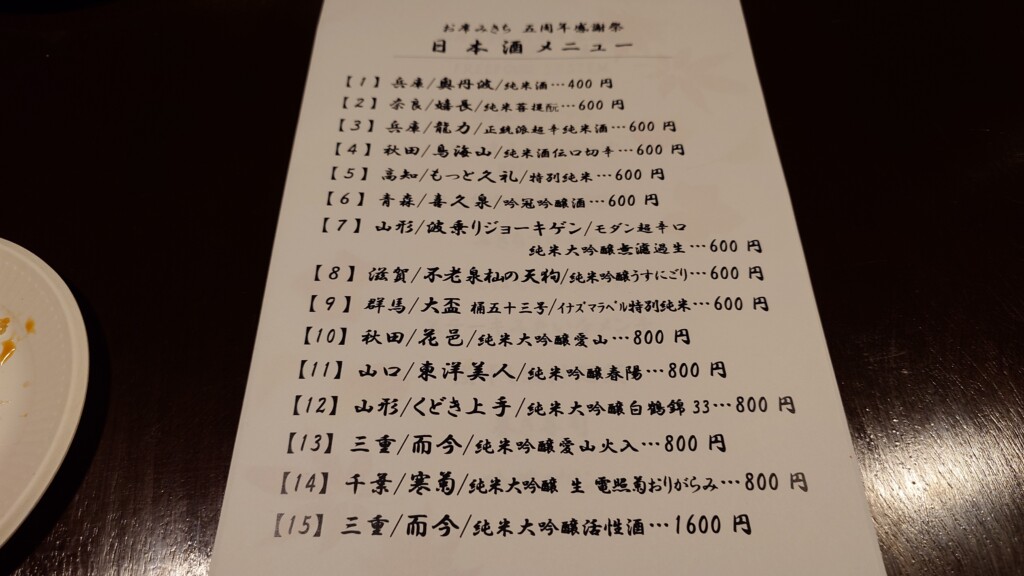 お席みきち 五周年感謝祭
日本酒メニュー
【1】兵庫/奥丹波/純米酒…400円
【2】奈良/嬉長/純米菩提酛…600円
【3】兵庫/龍力/正統派超辛純米酒…600円
【4】秋田/鳥海山/純米酒伝口切辛…600円
【5】高知/もっと久礼/特別純米…600円
【6】青森/喜久泉/吟冠吟醸酒…600円
【7】山形/波乗りジョーキゲン/モダン超辛口
純米大吟醸無濾過生…600円
【8】滋賀/不老泉杣の天狗/純米吟醸うすにごり…600円
【9】群馬/大盃 桶五十三号/イナズマラベル特別純米…600円
【10】秋田/花邑/純米大吟醸愛山…800円
【11】山口/東洋美人/純米吟醸春陽…800円
【12】山形/くどき上手/純米大吟醸白鶴錦33…800円
【13】三重/而今/純米吟醸愛山火入…800円
【14】千葉/寒菊/純米大吟醸 生 電照菊おりがらみ…800円
【15】三重/而今/純米大吟醸活性酒…1600円